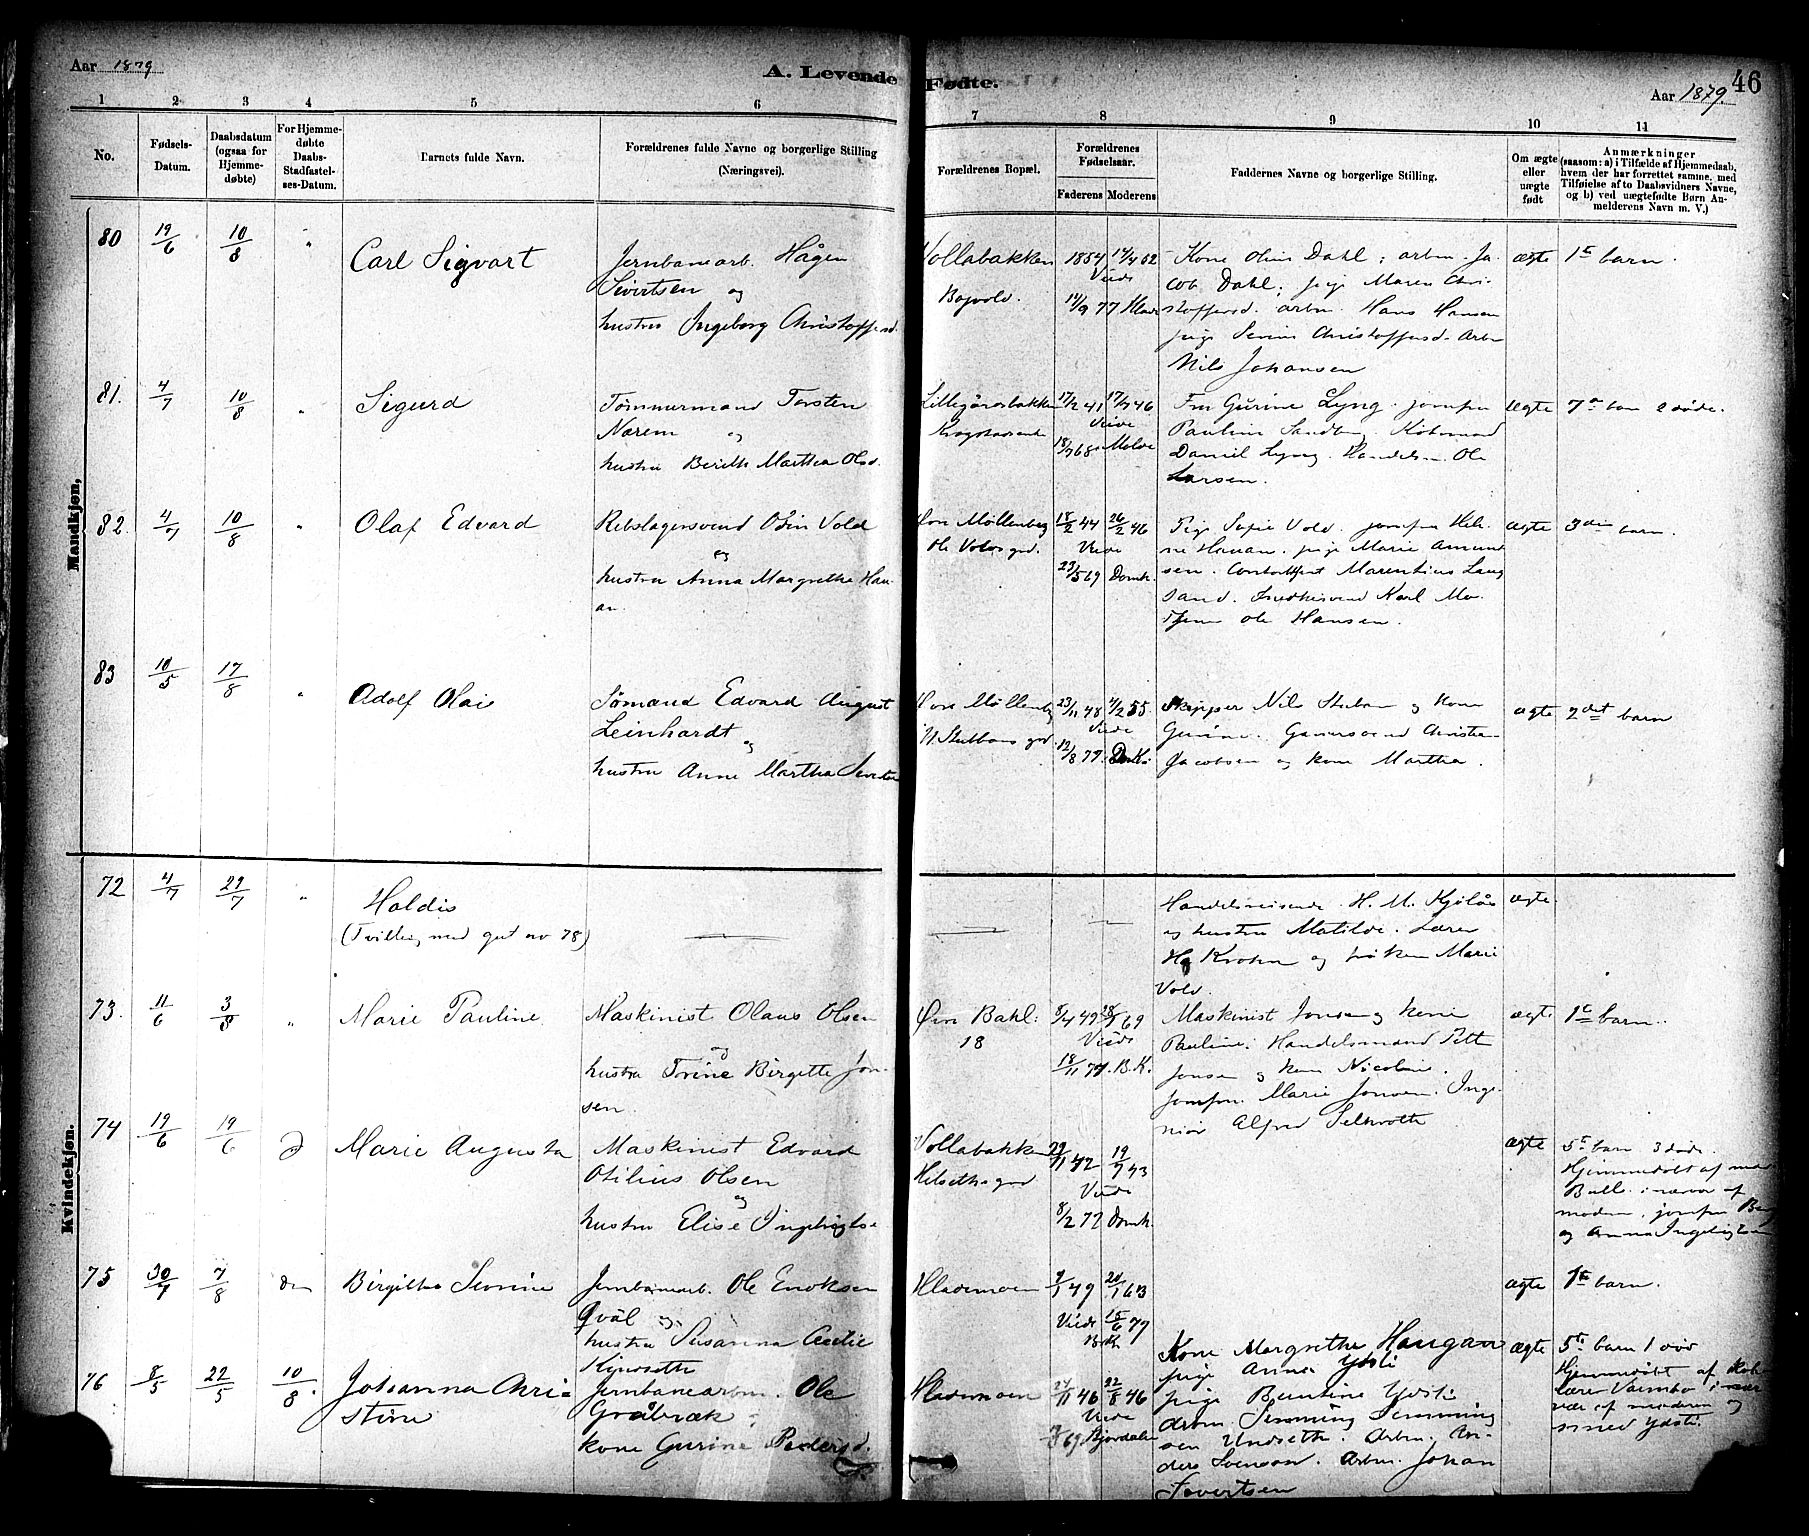 Aar 1879
A. Levende Fødte.
Aar 1879
46
1 2 3 4 5 6 7 8 9 10 11
No.
Fødsels-
Datum.
Daabsdatum
(ogsaa for
Hjemme-
døbte)
For Hjemme-
døbte
Daabs-
Stadfæstel-
ses-Datum.
Barnets fulde Navn.
Forældrenes fulde Navne og borgerlige Stilling
(Næringsvei).
Forældrenes Bopæl.
Forældrenes
Fødselsaar.
Faderens Moderens
Faddernes Navne og borgerlige Stilling.
Om ægte
eller
uægte
født
Anmærkninger
(saasom: a) i Tilfælde af Hjemmedaab,
hvem der har forrettet samme, med
Tilføielse af to Daabsvidners Navne,
og b) ved uægtefødte Børn An-
melderens Navn m. V.)
Mandkjøn,
80 19/6 10/8 "
Carl Sigvart
Jernbanearb. Hågen
Sivertsen og
hustru Ingeborg Christoffersd.
Vollabakken
1854
Viede
Kone Dahl; arbm. Ja-
cob Dahl; pige Maren Chri-
stoffersd. arbm. Hans Hansen
pige Christoffersd. Arbm
Nils Johansen
ægte
1te barn.
81. 4/7 10/8 "
Sigurd
Tømmermand Torsten
Nærem og
hustru Berith Marthea Olsd.
Lillegårdsbakken
17/2 41 17/7 46
Viede
18/7 68 Molde
Fru Gurine Lyng. jomfru
Pauline Sandberg. Kjøbmand
Daniel Lyng. Handelsm. Ole
Larsen.
ægte
7de barn 2 døde.
82. 4/7 10/8 "
Olaf Edvard
Rebslagersvend Olin Vold
og
hustru Anna Margrethe Hau-
an.
Øvre Møllenberg
Ole Volds grd.
18/2 44 26/2 46
Viede
23/5 69 Domk.
Pige Sofie Vold. jomfru Heli-
ne Hauan. pige Marie Amund-
sen. Marentius Lang
sand. Karl Mo-
Ole Hansen.
ægte
3die barn.
83 10/5 17/8 "
Adolf Olai
Sømand Edvard August
Leinhardt og
hustru Anne Martha Sivertsen
Øvre Møllenberg
N. Stubbans grd.
23/11 48 4/2 55.
Viede
12/8 77. Domk.
Skipper Nils Stuban og kone
Gurine. Garversvend Christian
Jacobsen og kone Martha.
ægte
2det barn
Kvindekjøn.
72 4/7 29/7 "
Haldis
(Tvilling med gut no 78)
Handelsreisende H. M. Kjelås
og hustru Matilde. Lærer
H. Krohn og frøken Marie
Vold.
ægte.
73. 11/6 3/8 "
Marie Pauline
Maskinist Olaus Olsen
og
hustru Torine Birgitte Jon-
sen.
Øvre Bakl:
18
Viede
18/11 77. B.K.
Maskinist Jonsen og kone
Pauline; Handelsmand Pett
Jonsen og kone Nicoline.
jomfru Marie Jonsen. Inge-
niør Alfred
ægte
1te barn.
74 19/6 19/6 d
Marie Augusta
Maskinist Edvard
Otilius Olsen
og
hustru Elise Ingebrigts-
Vollabakken
Hilseths grd
29/11 42 19/7 43
Viede
8/2 72 Domk.
ægte
5te barn 3 døde.
Hjemmedøbt af mad.
Bulls i nærvær af
modern, jomfru
og Anna Ingebrigtsen
75 30/7 7/8
Birgitha Sevrine
Jernbanearb. Ole Enoksen
Qvål og
hustru Susanna Cecilie
Kjindseth
Hlademoen
49 63
Viede 15/6 79
Bk
ægte
1te barn.
76 8/5 22/5 10/8.
Johanna Chri-
stine
Jernbanearbm. Ole
Gråbræk;
kone Gurine Pedersd.
Hlademoen
24/11 46 22/8 46
Viede
69 Bjordalen
Kone Margrethe Haugan
pige Anna Ydsti
pige Bentine Ydsti
arbm. Simming Simming-
sen Undseth. Arbm. An-
ders Svensson. Arbm. Johan
Sivertsen
ægte
5te barn 1 død
Hjemmedøbt af skole-
lærer Vambo i nær-
vær af moderen og
smed Ydsti.